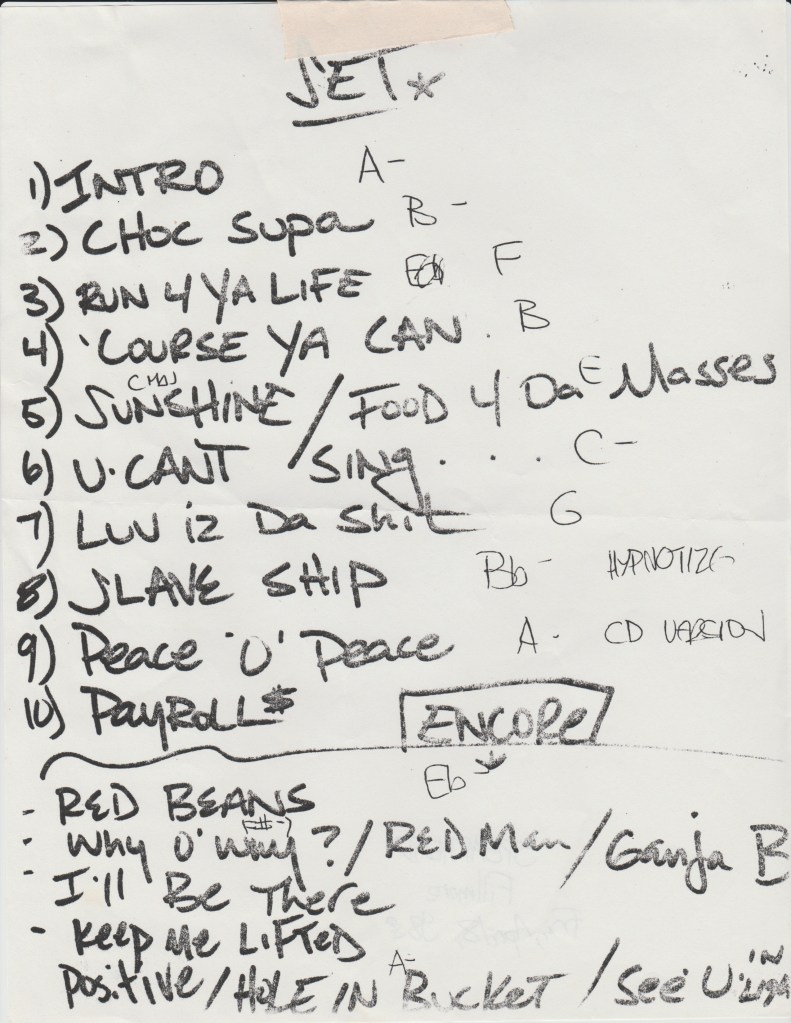 SET*
1) INTRO A-
2) CHOC Supa B-
3) RUN 4 YA LIFE F
4) 'COURSE YA CAN. B
CMaj E
5) SUNSHINE / FOOD 4 Da Masses
6) U.CANT / SING . . . C-
7) LUV iz Da Shit G
8) SLAVE SHIP Bb- HYPNOTIZE
9) Peace 'O' Peace A- CD VERSION
10) PAYROLL$
ENCORE
Eb
- RED BEANS
- Why O' Why? / REDMan / Ganja B
- I'll Be There
- Keep Me LIFTED
A-
Positive / HOLE IN BUCKET / See U IN